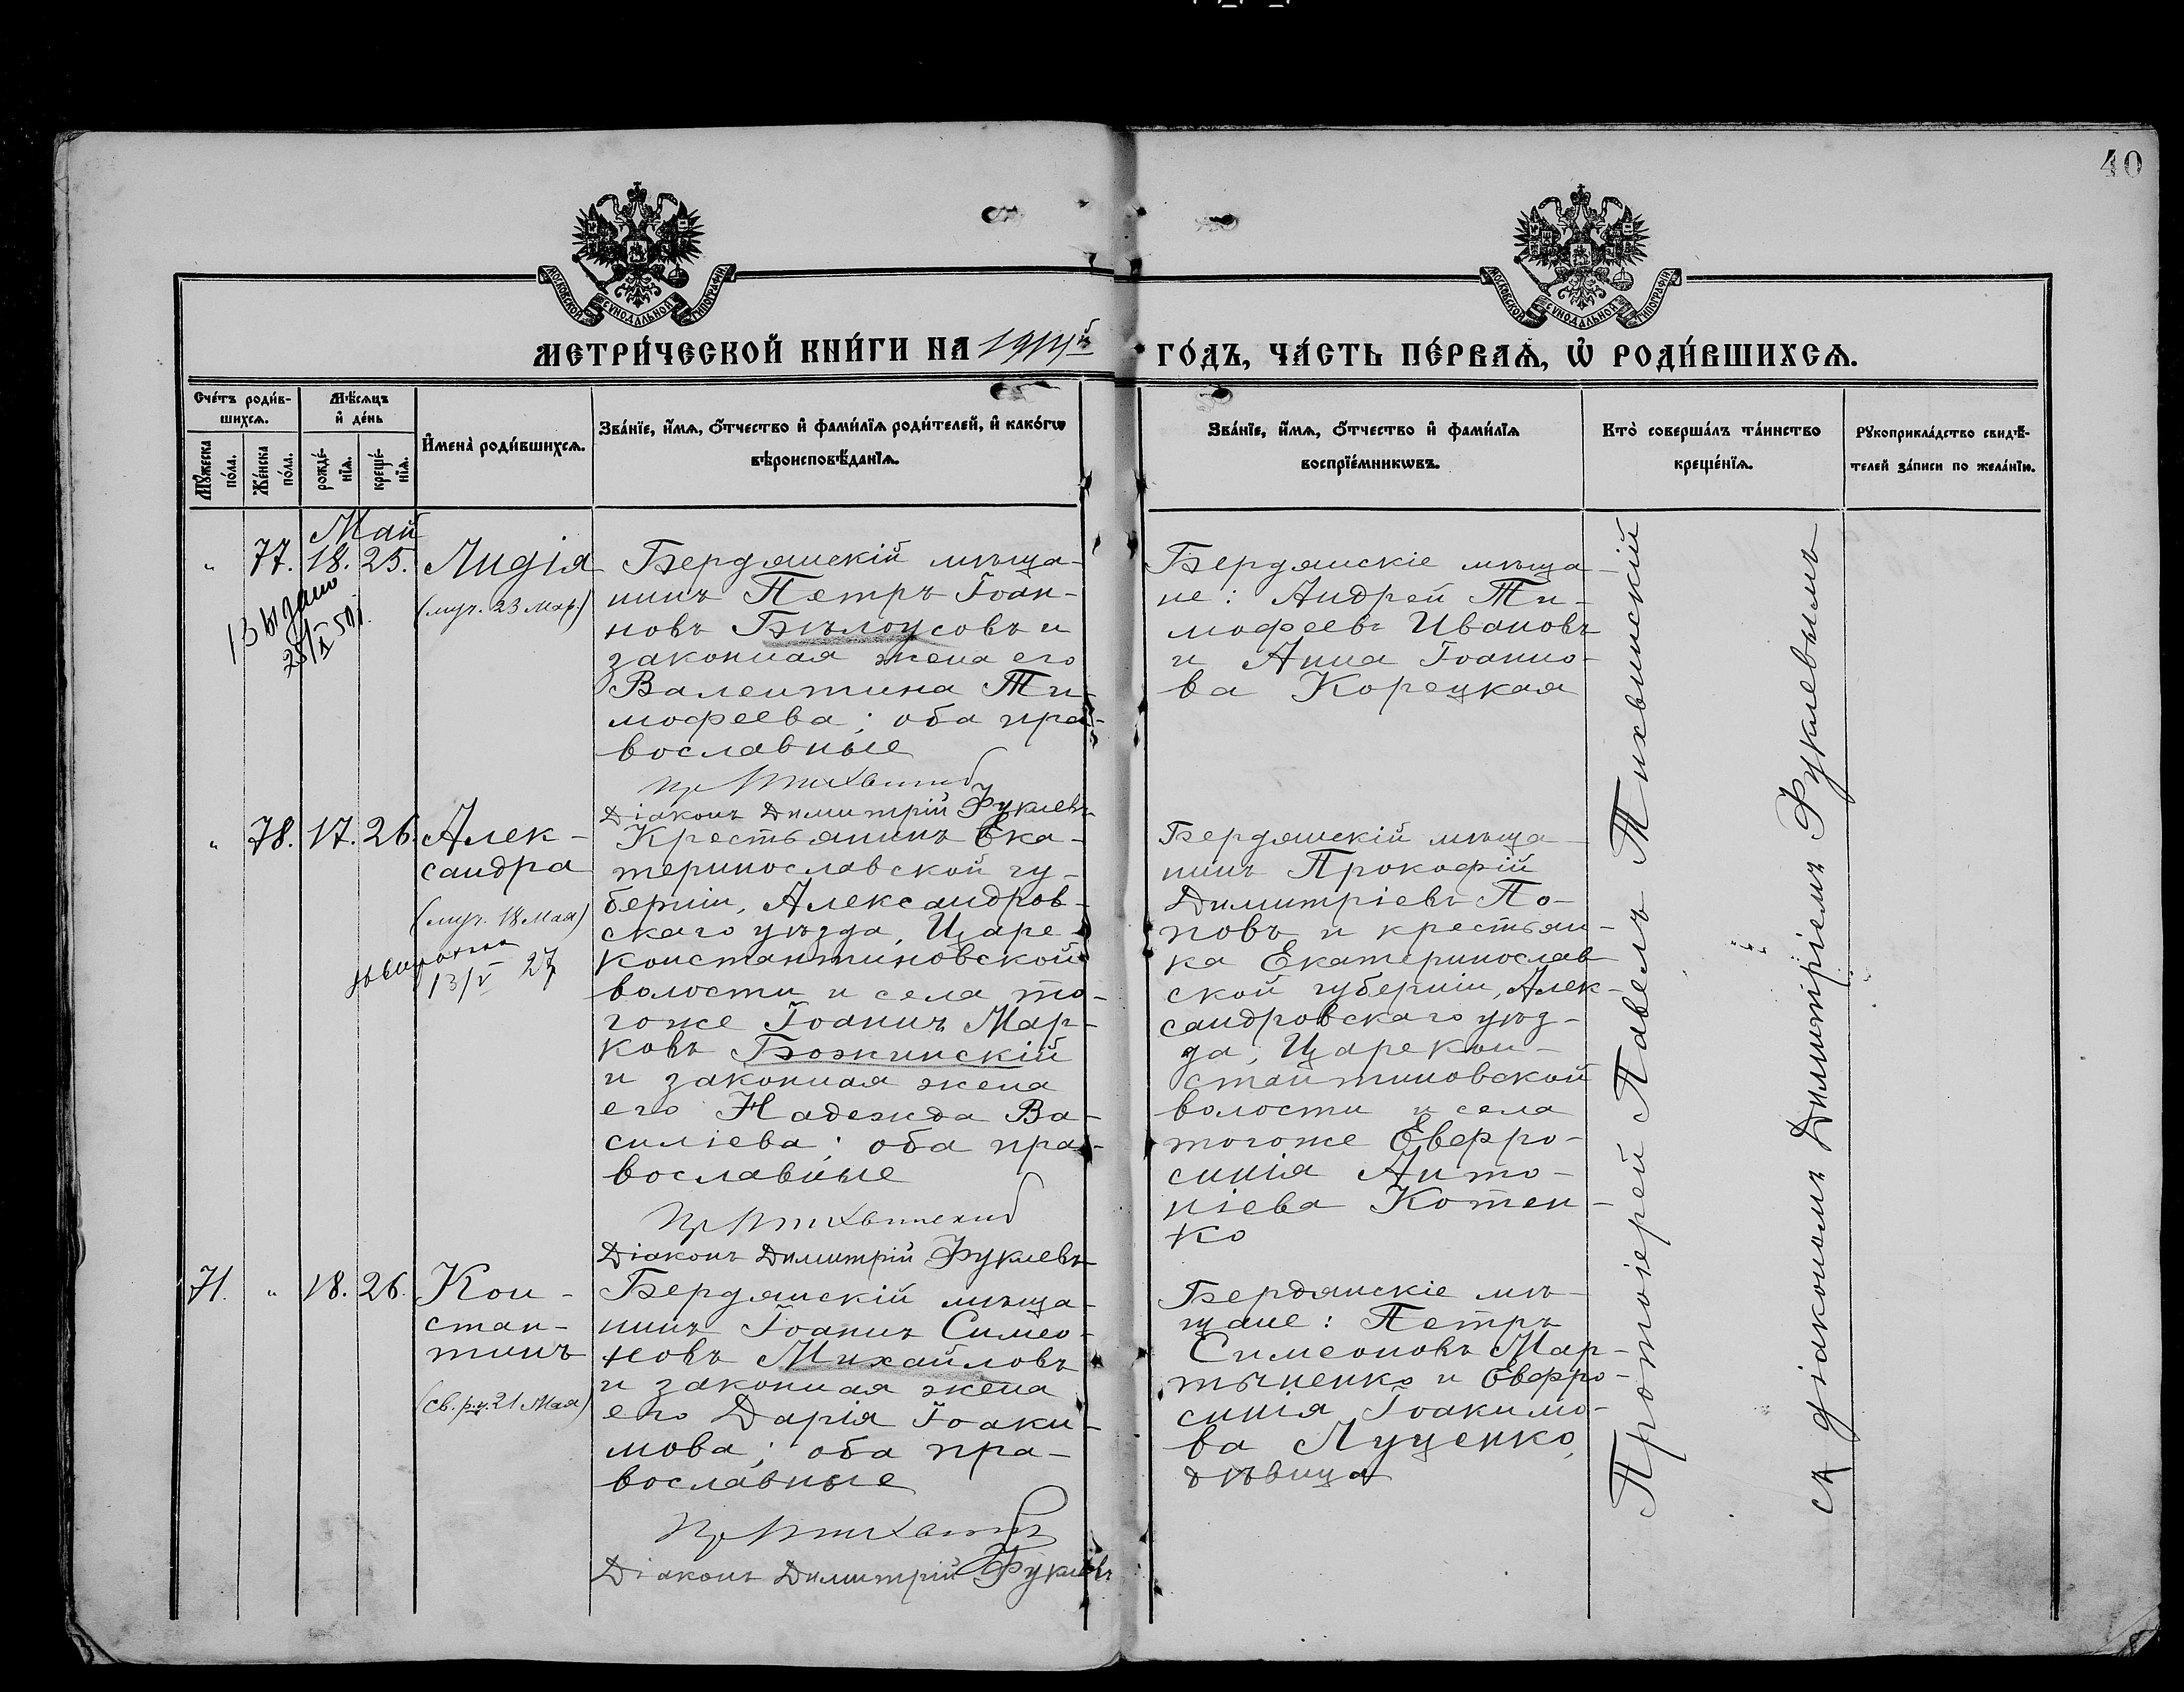 40
МОСКОВСКОЙ СѴНОДАЛЬНОЙ ТИПОГРАФІИ
МОСКОВСКОЙ СѴНОДАЛЬНОЙ ТИПОГРАФІИ
МЕТРИ́ЧЕСКОЙ КНИ́ГИ НА
ГО́ДЪ, ЧА́СТЬ ПЕ́РВАѦ, Ѡ҆ РОДИ́ВШИХСѦ.
Сче́тъ роди́в-
шихсѧ.
Мꙋ́жеска по́ла.
Же́нска по́ла.
Мѣ́сѧцъ
и҆ де́нь
рожде́-
нїѧ.
креще́-
нїѧ.
И҆мена̀ роди́вшихсѧ.
Зва́нїе, и҆́мѧ, ѻ҆́тчество и҆ фами́лїѧ роди́телей, и҆ како́гѡ
вѣроисповѣ́данїѧ.
Зва́нїе, и҆́мѧ, ѻ҆́тчество и҆ фами́лїѧ
воспрїе́мникѡвъ.
Кто̀ соверша́лъ та́инство
креще́нїѧ.
Рꙋкоприкла́дство свидѣ́-
телей за́писи по жела́нїю.
Май
" 77. 18. 25. Лидія
(муч. 23 мар.)
Выдано
25/X 50 г.
Бердянскій мѣща-
нинъ Петръ Іоан-
новъ Бѣлоусовъ и
законная жена его
Валентина Ти-
мофеева; оба пра-
вославные
Діаконъ Димитрій Фуклевъ
Бердянскіе мѣща-
не: Андрей Ти-
мофеевъ Ивановъ
и Анна Іоанно-
ва Корецкая
" 78. 17. 26. Алек-
сандра
(муч. 18 Мая)
13/V 27
Крестьянинъ Ека-
теринославской гу-
берніи, Александров-
скаго уѣзда, Царе-
константиновской
волости и села то-
гоже Іоаннъ Мар-
ковъ Божинскій
и законная жена
его Надежда Ва-
силіева; оба пра-
вославные
Пр Тихвинский
Діаконъ Димитрій Фуклевъ
Бердянскій мѣща-
нинъ Прокофій
Димитріевъ По-
повъ и крестьян-
ка Екатеринослав
ской губерніи, Алек-
сандровскаго уѣз-
да, Царекон-
стантиновской
волости и села
тогоже Евфро-
синія Анто-
ніева Котен-
ко
71. " 18. 26. Кон-
стан-
тинъ
(св. р.-а. 21 Мая)
Бердянскій мѣща-
нинъ Іоаннъ Симео-
новъ Михайловъ
и законная жена
его Дарія Іоаки-
мова; оба пра-
вославные
Діаконъ Димитрій Фуклевъ
Бердянскіе мѣ-
щане: Петръ
Симеоновъ Мар-
тыненко и Евфро-
синія Іоакимо-
ва Луценко,
дѣвица
Протоіерей Павелъ Тихвинскій
съ діакономъ Димитріемъ Фуклевымъ